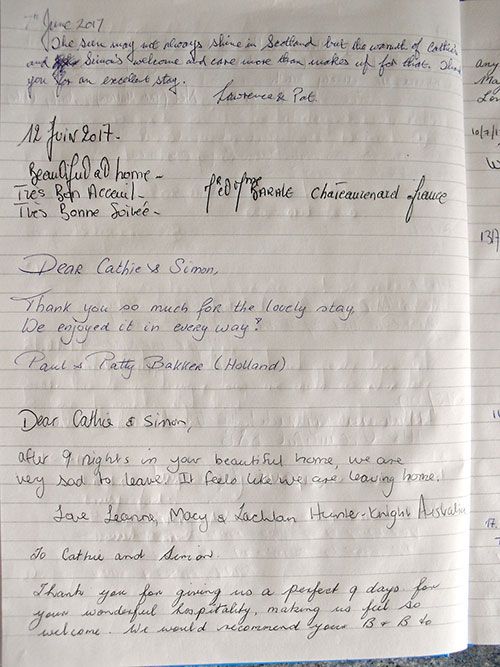 7th June 2017
The sun may not always shine in Scotland but the warmth of Cathie's
and Simon's welcome and care more than makes up for that. Thank
you for an excellent stay.
Lawrence & Pat.
12 Juin 2017.
Beautiful ad home -
Très Bon Acceuil -
Très Bonne Soirée -
Mr et Mme BARALE Chateaurenard France
Dear Cathie & Simon,
Thank you so much for the lovely stay.
We enjoyed it in every way!
Paul & Patty Bakker (Holland)
Dear Cathie & Simon,
after 9 nights in your beautiful home, we are
very sad to leave. It feels like we are leaving home.
Love Leanne, Macy & Lachlan Hunter-Knight Australia
To Cathie and Simon
Thank you for giving us a perfect 9 days for
your wonderful hospitality, making us feel so
welcome. We would recommend your B & B to
any
10/7/1
13/7
17.